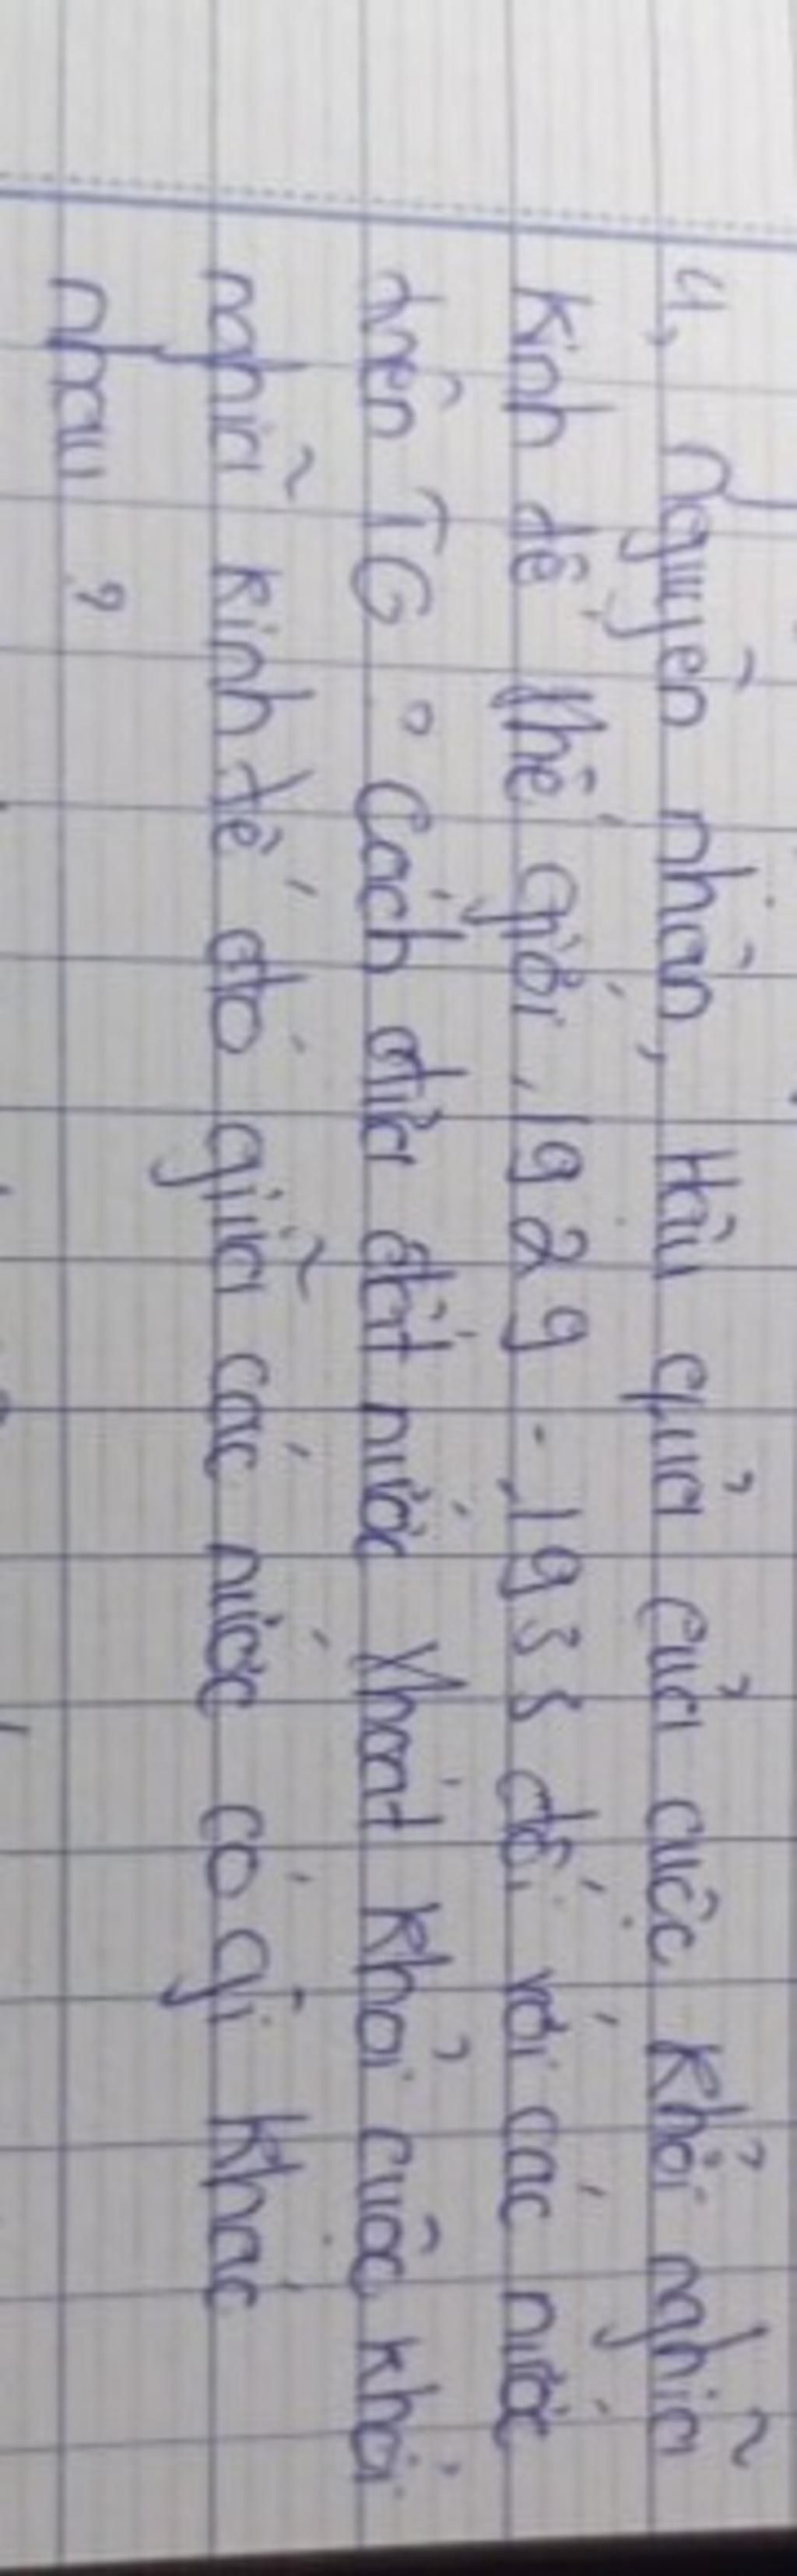 4, nguyên nhân, Hậu quả của cuộc khởi nghĩa
kinh tế thế giới 1929 - 1933 đối với các nước
trên TG. Cách đưa đất nước thoát khỏi cuộc khởi
nghĩa kinh tế đó giữa các nước có gì khác
nhau ?